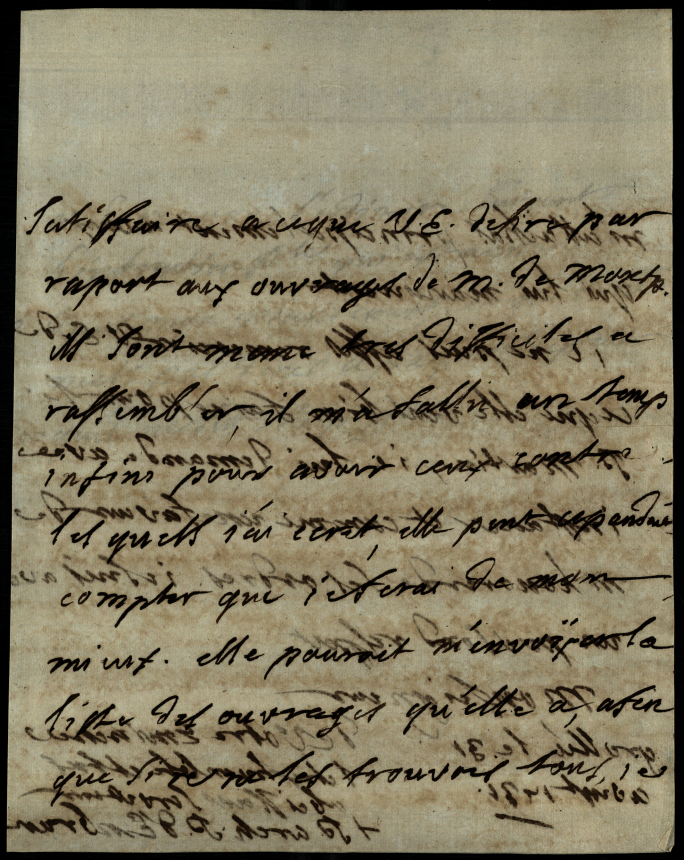 satisfaire a ce que V. E. desire par
raport aux ouvrages de M. de Montp.
ils sont meme tres difficiles a
rassembler, il m'a fallu un temps
infini pour avoir ceux contre
les quels j'ai ecrit, elle peut cependant
compter que je ferai de mon
mieux. elle pouroit m'envoÿer la
liste des ouvrages qu'elle a, afin
que si je ne les trouvois tous, je